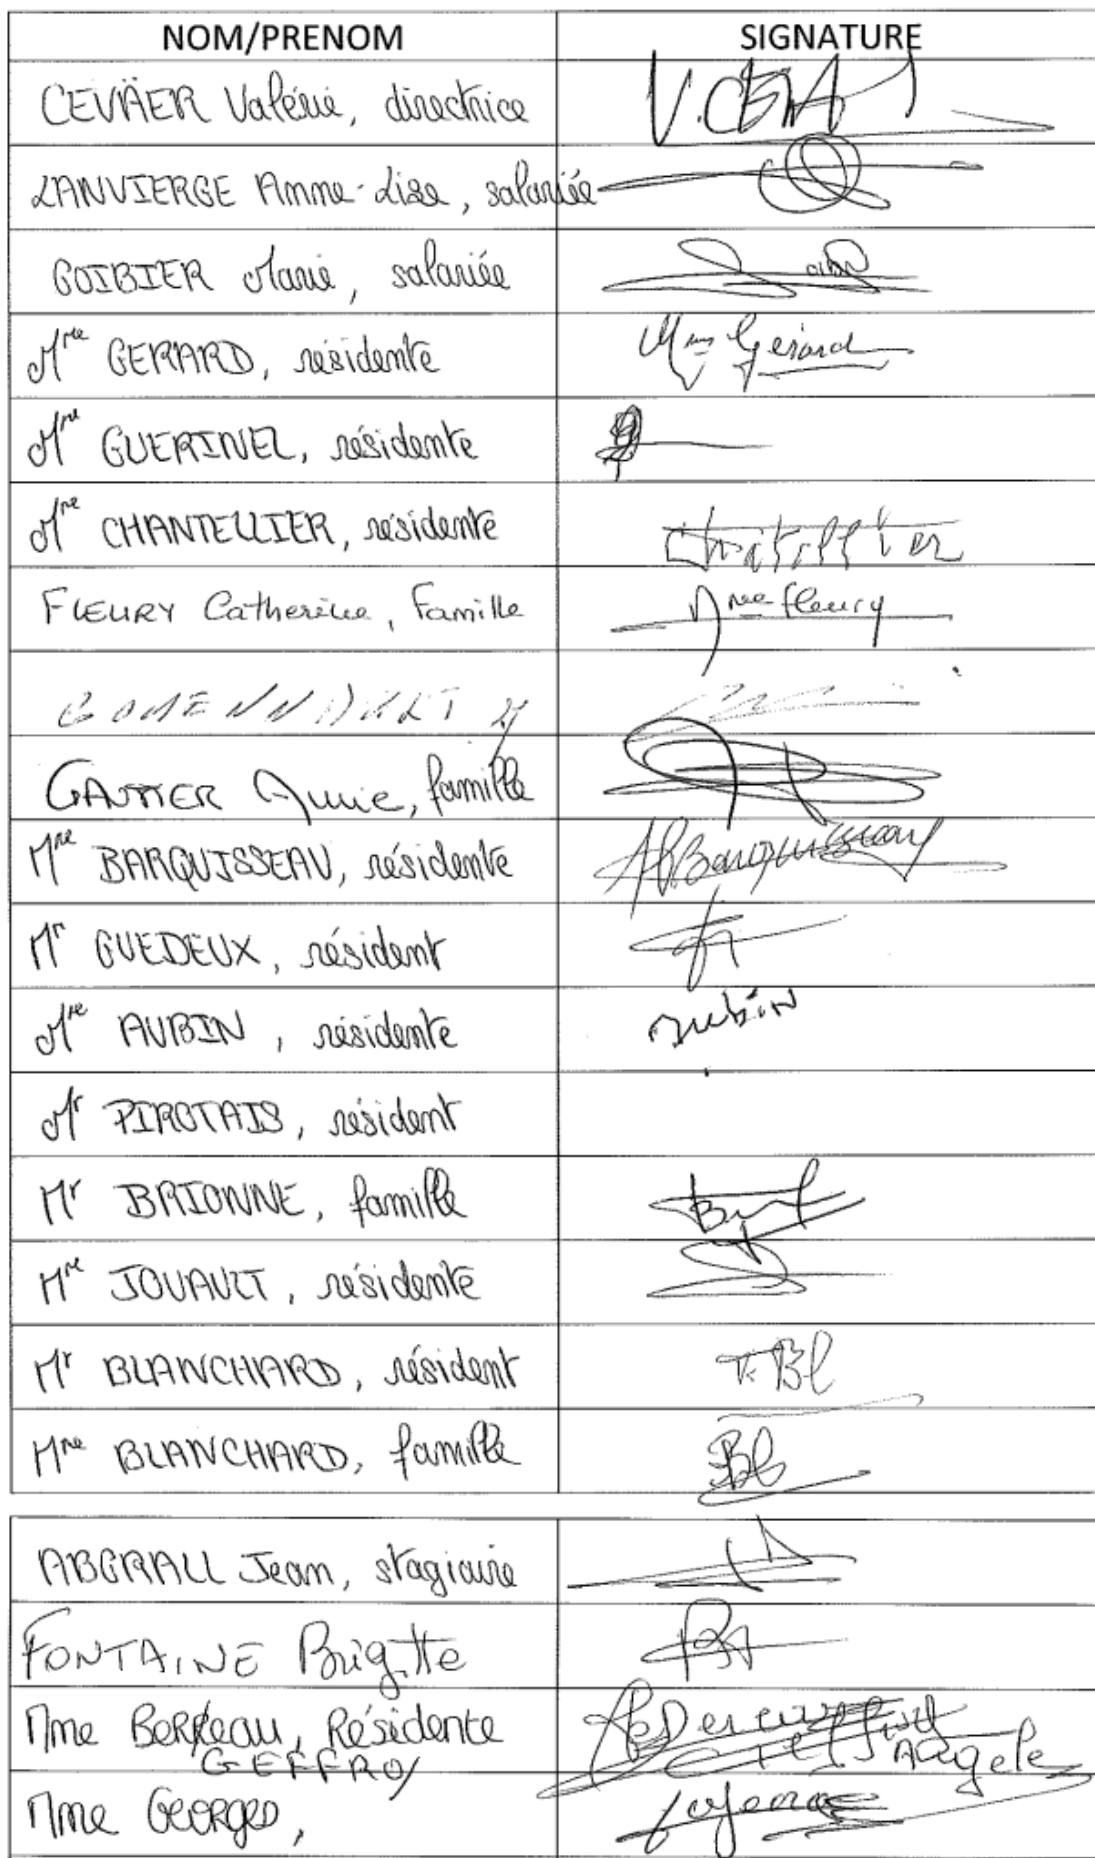 NOM/PRENOM SIGNATURE
CEVÄER Valérie, directrice
LANVIERGE Anne-Lise, salariée
GOIBIER Marie, salariée
Mme GERARD, résidente Mme Gérard
Mme GUERINEL, résidente
Mme CHANTELLIER, résidente
FLEURY Catherine, Famille Mme fleury
GAUTIER Annie, famille
Mme BARQUISSEAU, résidente
Mr GUEDEUX, résident
Mme AUBIN, résidente Aubin
Mr PIROTAIS, résident
Mr BRIONNE, famille
Mme JOUAULT, résidente
Mr BLANCHARD, résident Bl
Mme BLANCHARD, famille Bl
ABGRALL Jean, stagiaire
FONTAINE Brigitte
Mme Berreau, Résidente
GEFFROY Angele
Mme Georges,